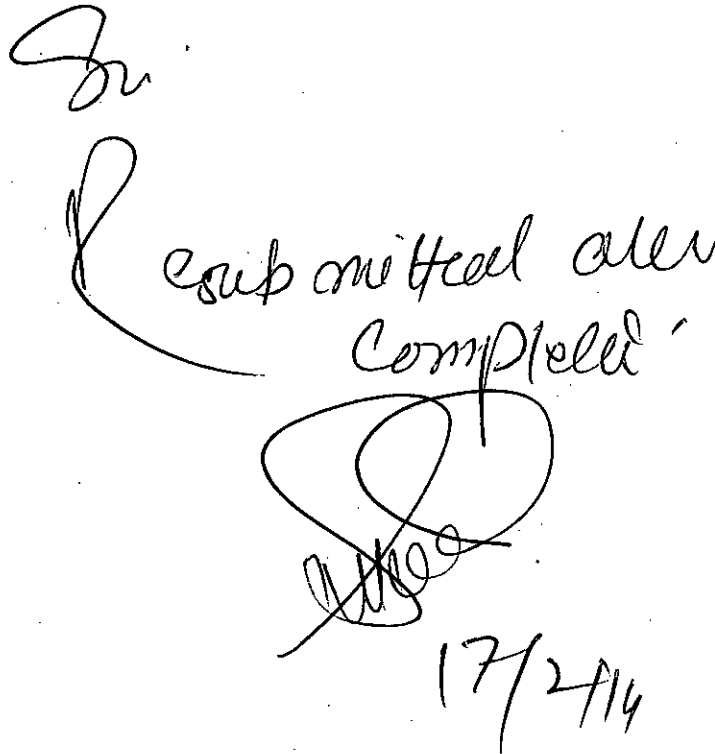 Sir
Resubmitted after
Complete
17/2/14